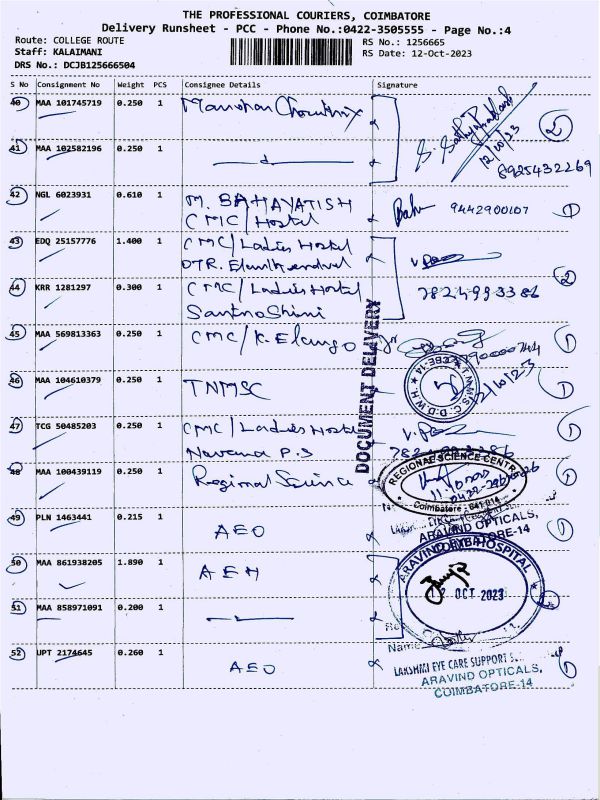 THE PROFESSIONAL COURIERS, COIMBATORE
Delivery Runsheet - PCC - Phone No.:0422-3505555 - Page No.:4
Route: COLLEGE ROUTE
Staff: KALAIMANI
DRS No.: DCJB125666504
RS No.: 1256665
RS Date: 12-Oct-2023
S No Consignment No Weight PCS Consignee Details Signature
40 MAA 101745719 0.250 1 Manohar
12/10/23 2
8925432269
41 MAA 102582196 0.250 1
42 NGL 6023931 0.610 1 M. BAHAYATISH
CMC/Hostel
9442900107 1
43 EDQ 25157776 1.400 1 CMC/Ladies Hostel
DTR.
44 KRR 1281297 0.300 1 CMC/Ladies Hostel
7824993386 2
45 MAA 569813363 0.250 1 CMC/K. Elango
1
DOCUMENT DELIVERY
46 MAA 104610379 0.250 1 TNMSC
CBE-14
T.N.M.S.C. D.D.W.H.
12/10/23 1
47 TCG 50485203 0.250 1 CMC/Ladies Hostel
Navama P.S
1
48 MAA 100439119 0.250 1 Regional Science
REGIONAL SCIENCE CENTRE
Coimbatore - 641 014
1
49 PLN 1463441 0.215 1 AEO
ARAVIND OPTICALS,
COIMBATORE-14
1
50 MAA 861938205 1.890 1 AEH
ARAVIND EYE HOSPITAL
12 OCT 2023
51 MAA 858971091 0.200 1
Name
52 UPT 2174645 0.260 1 AEO
LAKSHMI EYE CARE SUPPORT
ARAVIND OPTICALS,
COIMBATORE-14
1